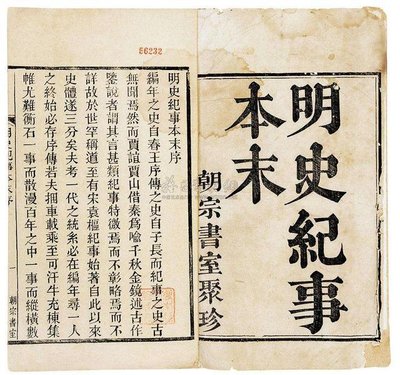 明史紀事
本末
朝宗書室聚珍
56232
明史紀事本末序
編年之史自春王序傳之史自子長而紀事之史古
無聞焉然而賈山借秦爲喻千秋金鏡述古作
鑒說者謂其言甚類紀事特微焉而不彰略焉而不
詳故於世罕稱道至有宋袁樞紀事始著自此以來
史體遂三分矣夫考一代之統系必在編年尋一人
之終始必存序傳若夫捆車載乘至可汗牛充棟集
帷尤難衡石一事而散漫百年之中一事而縱橫數
明史紀事本末序
朝宗書室